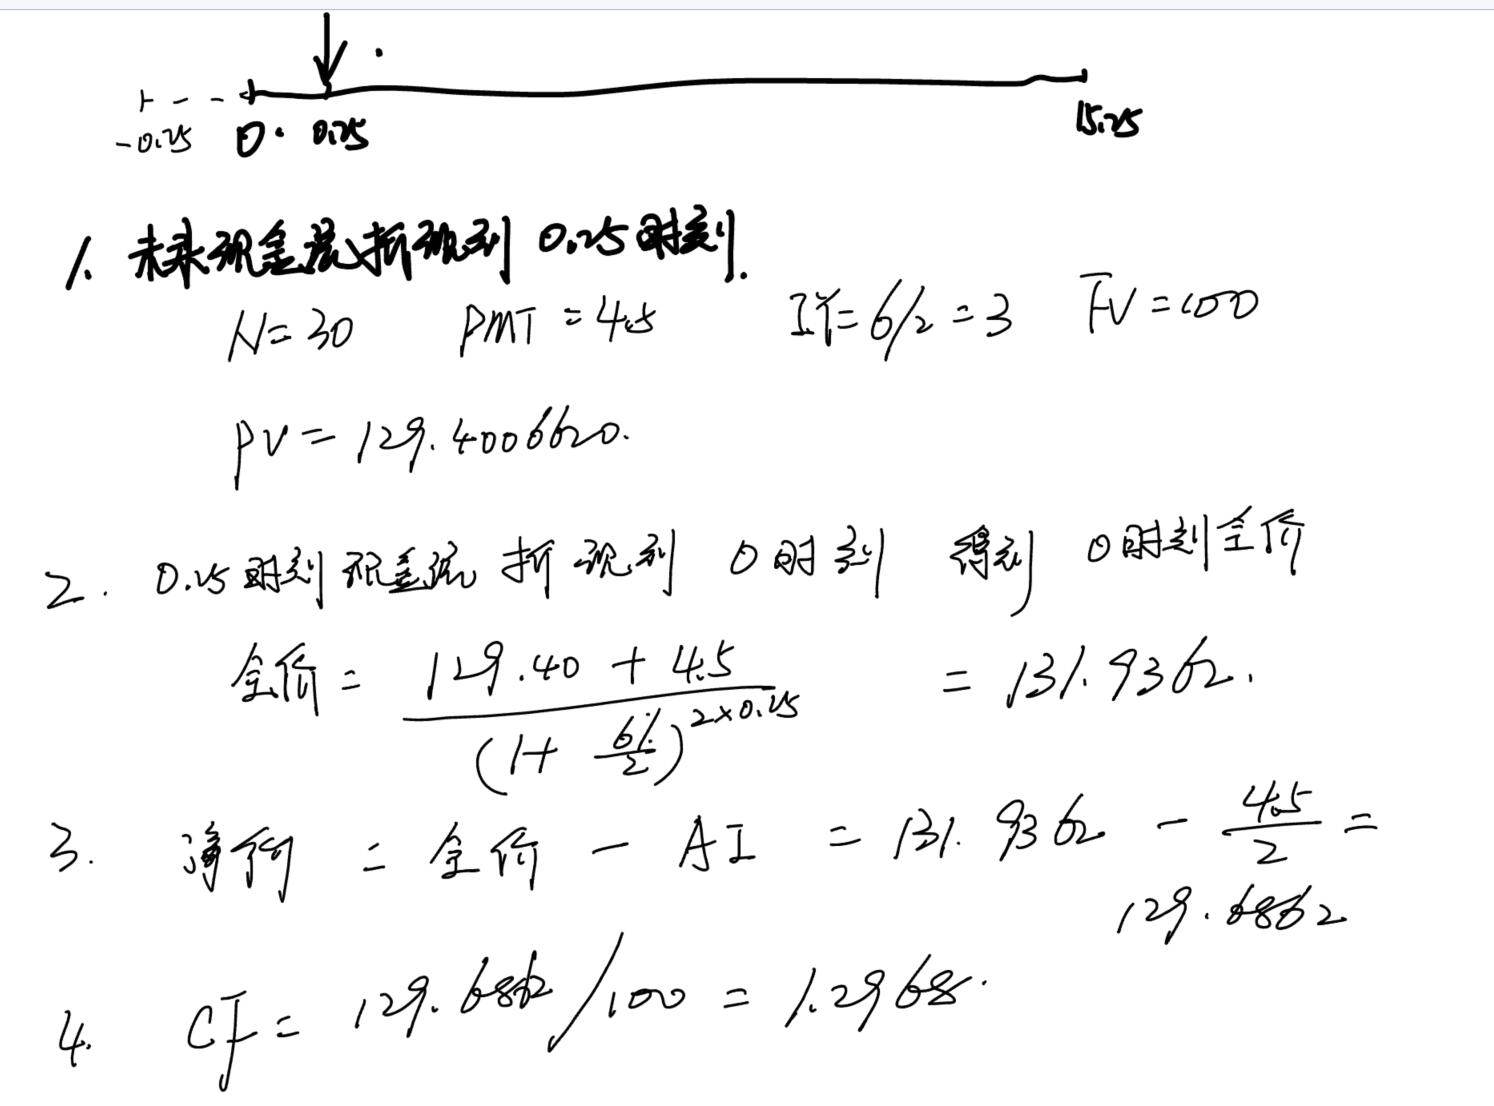 -0.25 0. 0.25 15.25
1. 未来现金流折现到 0.25时刻.
N=30 PMT=4.5 IY=6/2=3 FV=100
PV=129.4006620.
2. 0.25时刻现金流 折现到 0时刻 得到 0时刻全价
全价 = \frac{129.40 + 4.5}{(1+\frac{6%}{2})^{2×0.25}} = 131.9362.
3. 净价 = 全价 - AI = 131.9362 - \frac{4.5}{2} =
129.6862
4. CF = 129.6862/100 = 1.2968.